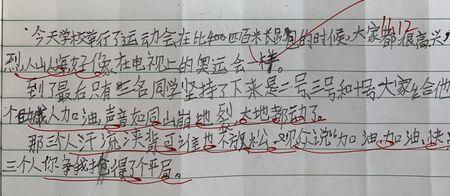 今天学校举行了运动会在比400四百米长跑的时候,大家都很高兴
烈,人山人海好像在电视上的奥运会一样。
到了最后只有三名同学坚持了下来是二号三号和十号,大家给他
个人加油,声音如同山崩地裂,大地都动了。
那三个人汗流浃背可谁也不放松,观众说"加油,加油,快
三个人你争我抢得了个平局。